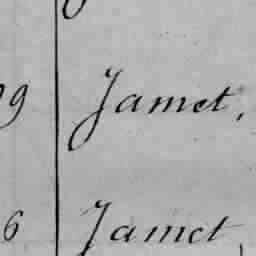 9 Jamet,
6 Jamet,